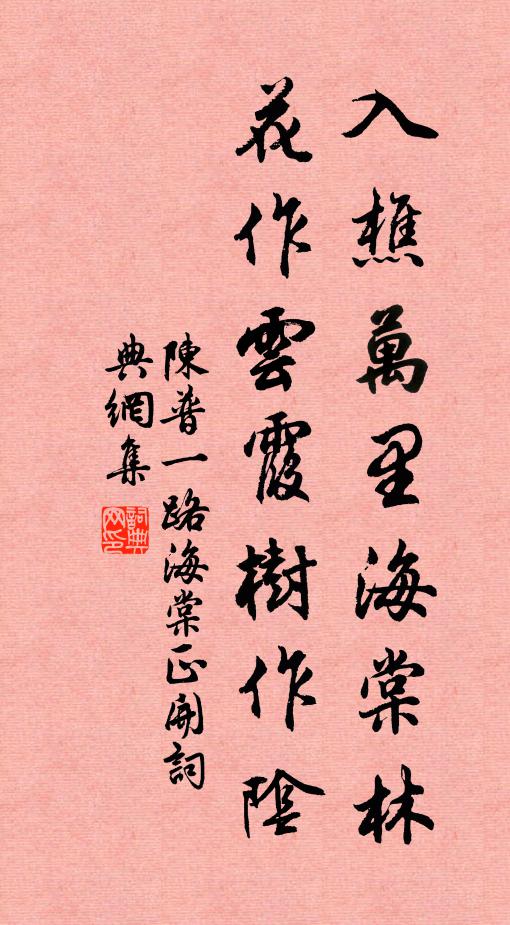 入樵萬里海棠林
花作雲霞樹作陰
陳普一路海棠正開詞
典網集
詞典網印